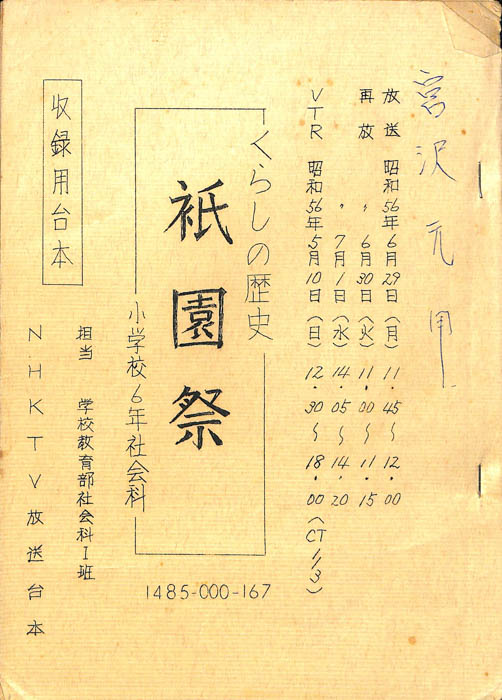 宮沢元用
放送 昭和56年6月29日(月) 11・45〜12・00
再放 〃 6月30日(火) 11・00〜11・15
〃 7月1日(水) 14・05〜14・20
VTR 昭和56年5月10日(日) 12・30〜18・00(CT1/3)
くらしの歴史
祇園祭
小学校6年社会科
1485-000-167
収録用台本
担当 学校教育部社会科I班
NHKTV放送台本